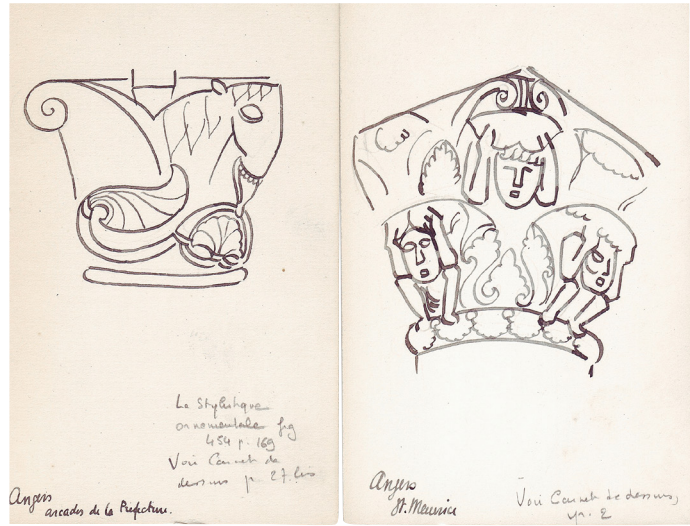 La Stylistique
ornementale fig
454 p. 169
Voir Carnet de
dessins p. 27 bis
Angers
arcades de la Préfecture.
Angers
St. Maurice
Voir Carnet de dessins,
p. 2